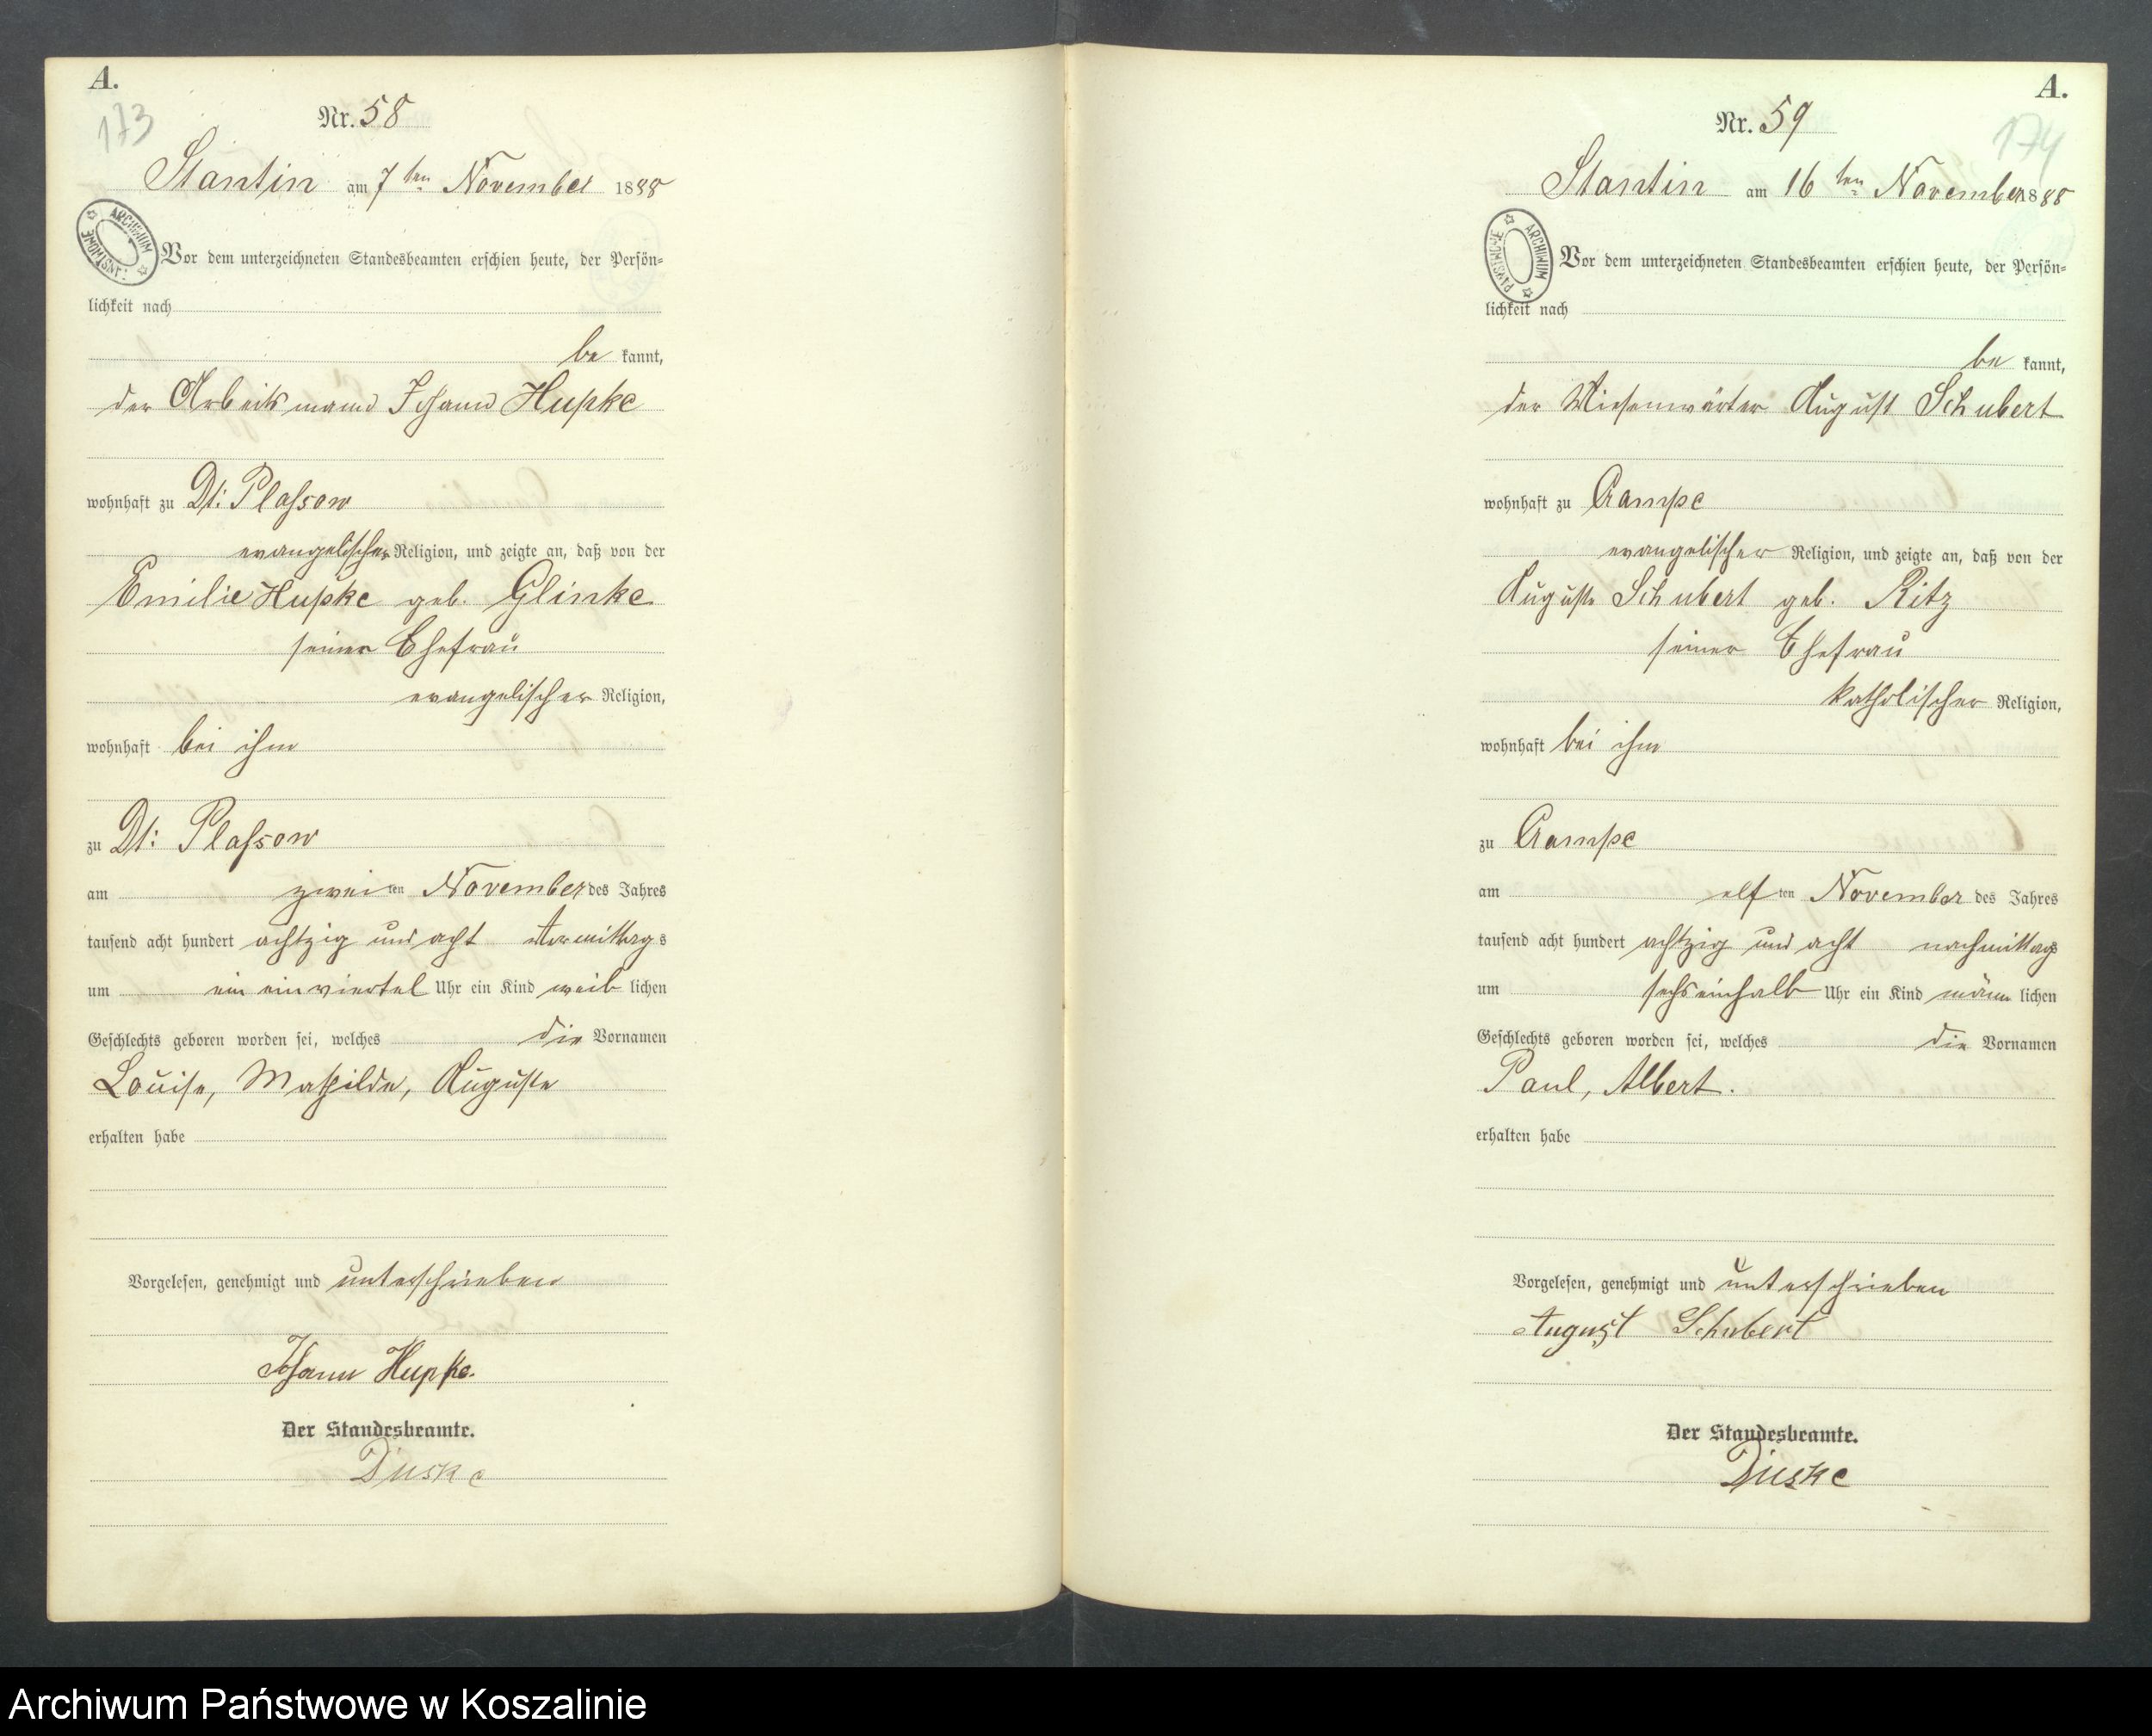 A.
173
Nr. 58
Stantin am 7ten November 1888
ARCHIWUM PAŃSTWOWE
Vor dem unterzeichneten Standesbeamten erschien heute, der Persön=
lichkeit nach
be kannt,
der Arbeitsmann Johann Hupke
wohnhaft zu Dt: Plassow
evangelischer Religion, und zeigte an, daß von der
Emilie Hupke geb. Glinke
seiner Ehefrau
evangelischer Religion,
wohnhaft bei ihm
zu Dt: Plassow
am zweiten November des Jahres
tausend acht hundert achtzig und acht Vormittags
um ein einviertel Uhr ein Kind weiblichen
Geschlechts geboren worden sei, welches die Vornamen
Louise, Mathilde, Auguste
erhalten habe
Vorgelesen, genehmigt und unterschrieben
Johann Hupke.
Der Standesbeamte.
Düske
A.
174
Nr. 59
Stantin am 16ten November 1888
ARCHIWUM PAŃSTWOWE
Vor dem unterzeichneten Standesbeamten erschien heute, der Persön=
lichkeit nach
be kannt,
der Wiesenwärter August Schubert
wohnhaft zu Crampe
evangelischer Religion, und zeigte an, daß von der
Auguste Schubert geb. Ritz
seiner Ehefrau
katholischer Religion,
wohnhaft bei ihm
zu Crampe
am elften November des Jahres
tausend acht hundert achtzig und acht nachmittags
um sechseinhalb Uhr ein Kind männlichen
Geschlechts geboren worden sei, welches die Vornamen
Paul, Albert.
erhalten habe
Vorgelesen, genehmigt und unterschrieben
August Schubert
Der Standesbeamte.
Düske
Archiwum Państwowe w Koszalinie